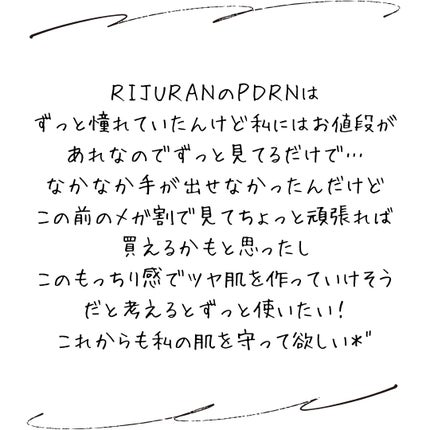 RIJURANのPDRNは
ずっと憧れていたんけど私にはお値段が
あれなのでずっと見てるだけで…
なかなか手が出せなかったんだけど
この前のメガ割で見てちょっと頑張れば
買えるかもと思ったし
このもっちり感でツヤ肌を作っていけそう
だと考えるとずっと使いたい！
これからも私の肌を守って欲しい*"